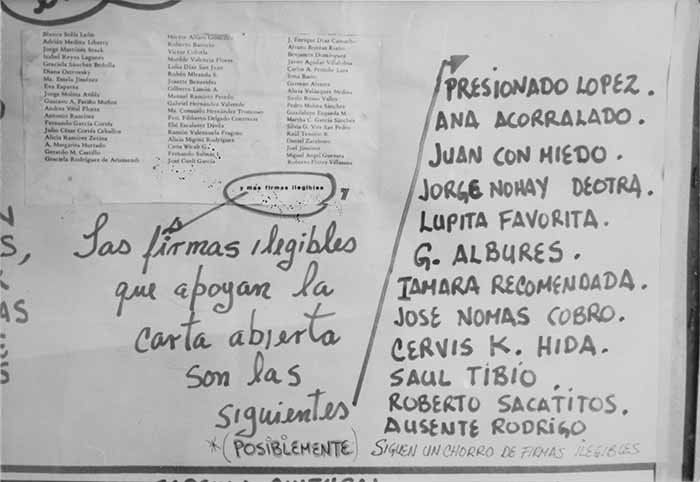 Blanca Solís León
Adrián Medina Liberty
Jorge Martínez Stack
Isabel Reyes Lagunes
Graciela Sánchez Bedolla
Diana Ostrovsky
Ma. Estela Jiménez
Eva Esparza
Jorge Molina Avilés
Gustavo A. Patiño Muñoz
Andrea Vidal Flores
Antonio Ramírez
Fernando García Cortés
Julio César Cortés Ceballos
Alicia Ramírez Zetina
A. Margarita Hurtado
Gerardo M. Castillo
Graciela Rodríguez de Arizmendi
Héctor Alvaro González
Roberto Barocio
Víctor Colotla
Matilde Valencia Flores
Lidia Díaz San Juan
Rubén Miranda S.
Josette Benavides
Gilberto Limón A.
Manuel Ramírez Peredo
Gabriel Hernández Valverde
Ma. Consuelo Hernández Troncoso
Fco. Filiberto Delgado Contreras
Elsi Escalante Dávila
Ramón Valenzuela Fragoso
Alicia Migoni Rodríguez
Fernando Salinas
José Cueli García
J. Enrique Díaz Camacho
Alvaro Benítez Rubio
Benjamín Domínguez
Javier Aguilar Villalobos
Carlos A. Peniche Lara
Irma Barro
Germán Alvarez
Alicia Velázquez Medina
Emilio Rosso Valles
Pedro Molina Sánchez
Guadalupe Esqueda M.
Martha C. García Sánchez
Silvia G. Vite San Pedro
Raúl Tenorio R.
Daniel Zarabozo
Joel Jiménez
Miguel Angel Guevara
Roberto Flores Villasana
y más firmas ilegibles
Las firmas ilegibles
que apoyan la
carta abierta
son las
siguientes
*(POSIBLEMENTE)
PRESIONADO LOPEZ.
ANA ACORRALADO.
JUAN CON MIEDO.
JORGE NOHAY DEOTRA.
LUPITA FAVORITA.
G. ALBURES.
TAMARA RECOMENDADA.
JOSE NOMAS COBRO.
CERVIS K. HIDA.
SAUL TIBIO.
ROBERTO SACATITOS.
AUSENTE RODRIGO
SIGUEN UN CHORRO DE FIRMAS ILEGIBLES